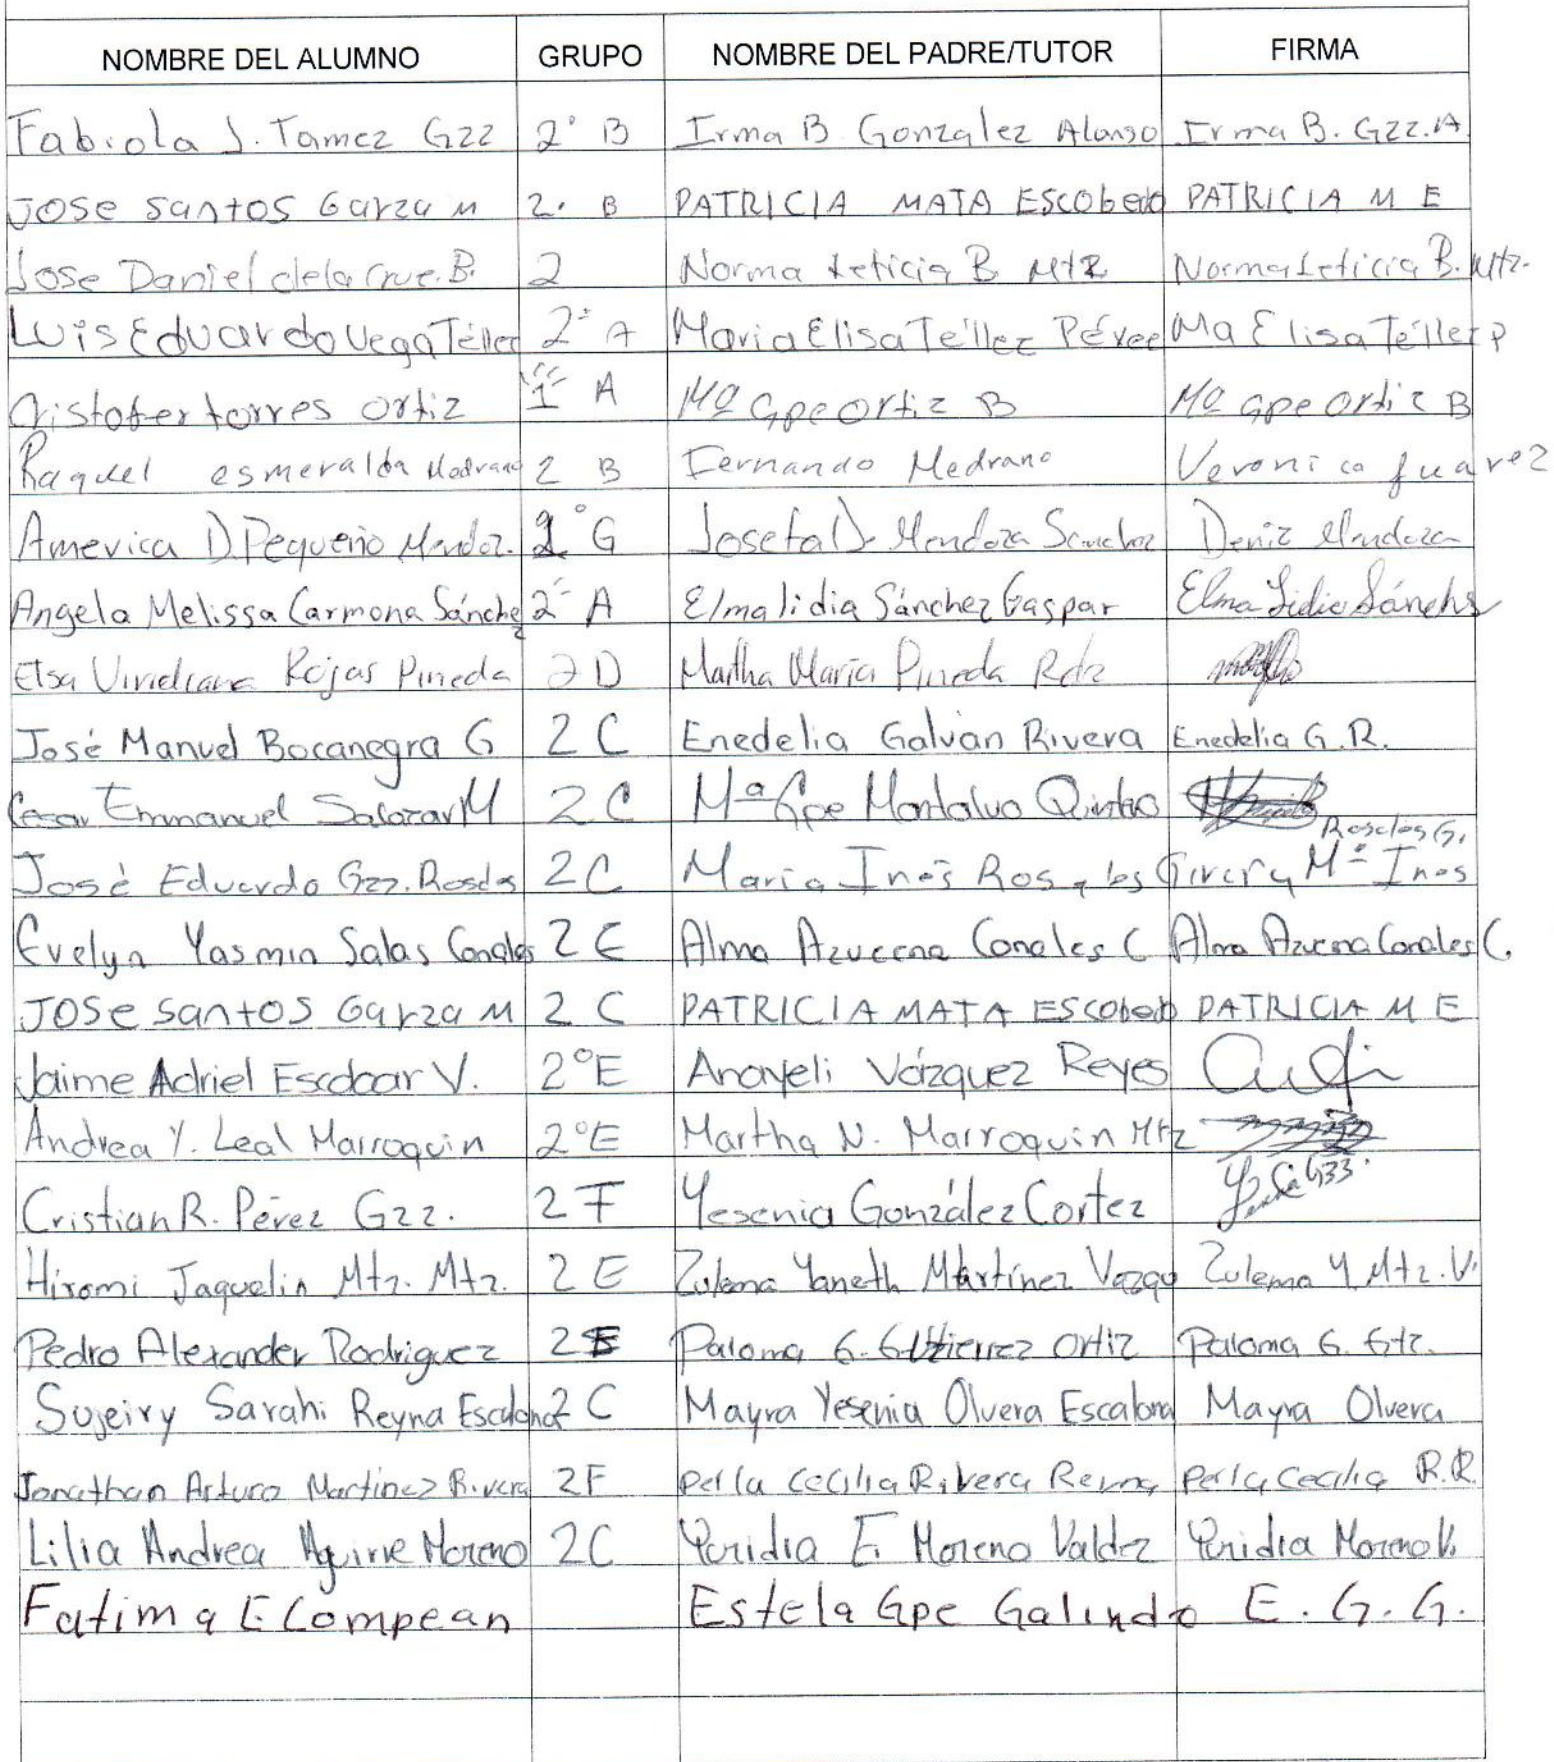 NOMBRE DEL ALUMNO GRUPO NOMBRE DEL PADRE/TUTOR FIRMA
Fabiola J. Tamez Gzz 2° B Irma B. Gonzalez Alonso Irma B. Gzz. A.
JOSE SANTOS Garza M 2. B PATRICIA MATA ESCOBEDO PATRICIA M E
Jose Daniel dela Cruz. B. 2 Norma Leticia B Mtz Norma Leticia B. Mtz.
Luis Eduardo Vega Téllez 2° A Maria Elisa Téllez Pérez Ma Elisa Téllez P
Cristofer torres ortiz 1 A Mª Gpe Ortiz B Mª Gpe Ortiz B
Raquel esmeralda Medrano 2 B Fernando Medrano Veronica Juarez
America D. Pequeño Mendoz. 2° G Josefa D. Mendoza Sanchez Deniz Mendoza
Angela Melissa Carmona Sánchez 2 A Elma lidia Sánchez Gaspar Elma Lidia Sánchz
Elsa Viridiana Rojas Pineda 2D Martha Maria Pineda Rdz
José Manuel Bocanegra G 2 C Enedelia Galván Rivera Enedelia G. R.
Cesar Emmanuel Salazar M 2 C Mª Gpe Montalvo
José Eduardo Gzz. Rosales 2C Maria Inés Rosales Mª Inés Rosales G.
Evelyn Yasmin Salas Canales 2 E Alma Azucena Canales C Alma Azucena Canales C.
JOSe SANTOS Garza M 2 C PATRICIA MATA ESCOBEDO PATRICIA M E
Jaime Adriel Escobar V. 2°E Anayeli Vázquez Reyes
Andrea Y. Leal Marroquin 2°E Martha N. Marroquin Mtz
Cristian R. Pérez Gzz. 2 F Yesenia González Cortez
Hiromi Jaquelin Mtz. Mtz. 2 E Zulema Yaneth Martínez Vazqu Zulema Y. Mtz. V.
Pedro Alexander Rodriguez 2 Paloma G. Gutierrez Ortiz Paloma G. Gtz.
Sujeiry Sarahi Reyna Escalona 2 C Mayra Yesenia Olvera Escalona Mayra Olvera
Jonathan Arturo Martinez Rivera 2F Perla Cecilia Rivera Reyna Perla Cecilia R.R.
Lilia Andrea Aguirre Moreno 2C Yuridia E. Moreno Valdez Yuridia Moreno V.
Fatima E Compean Estela Gpe Galindo E. G. G.